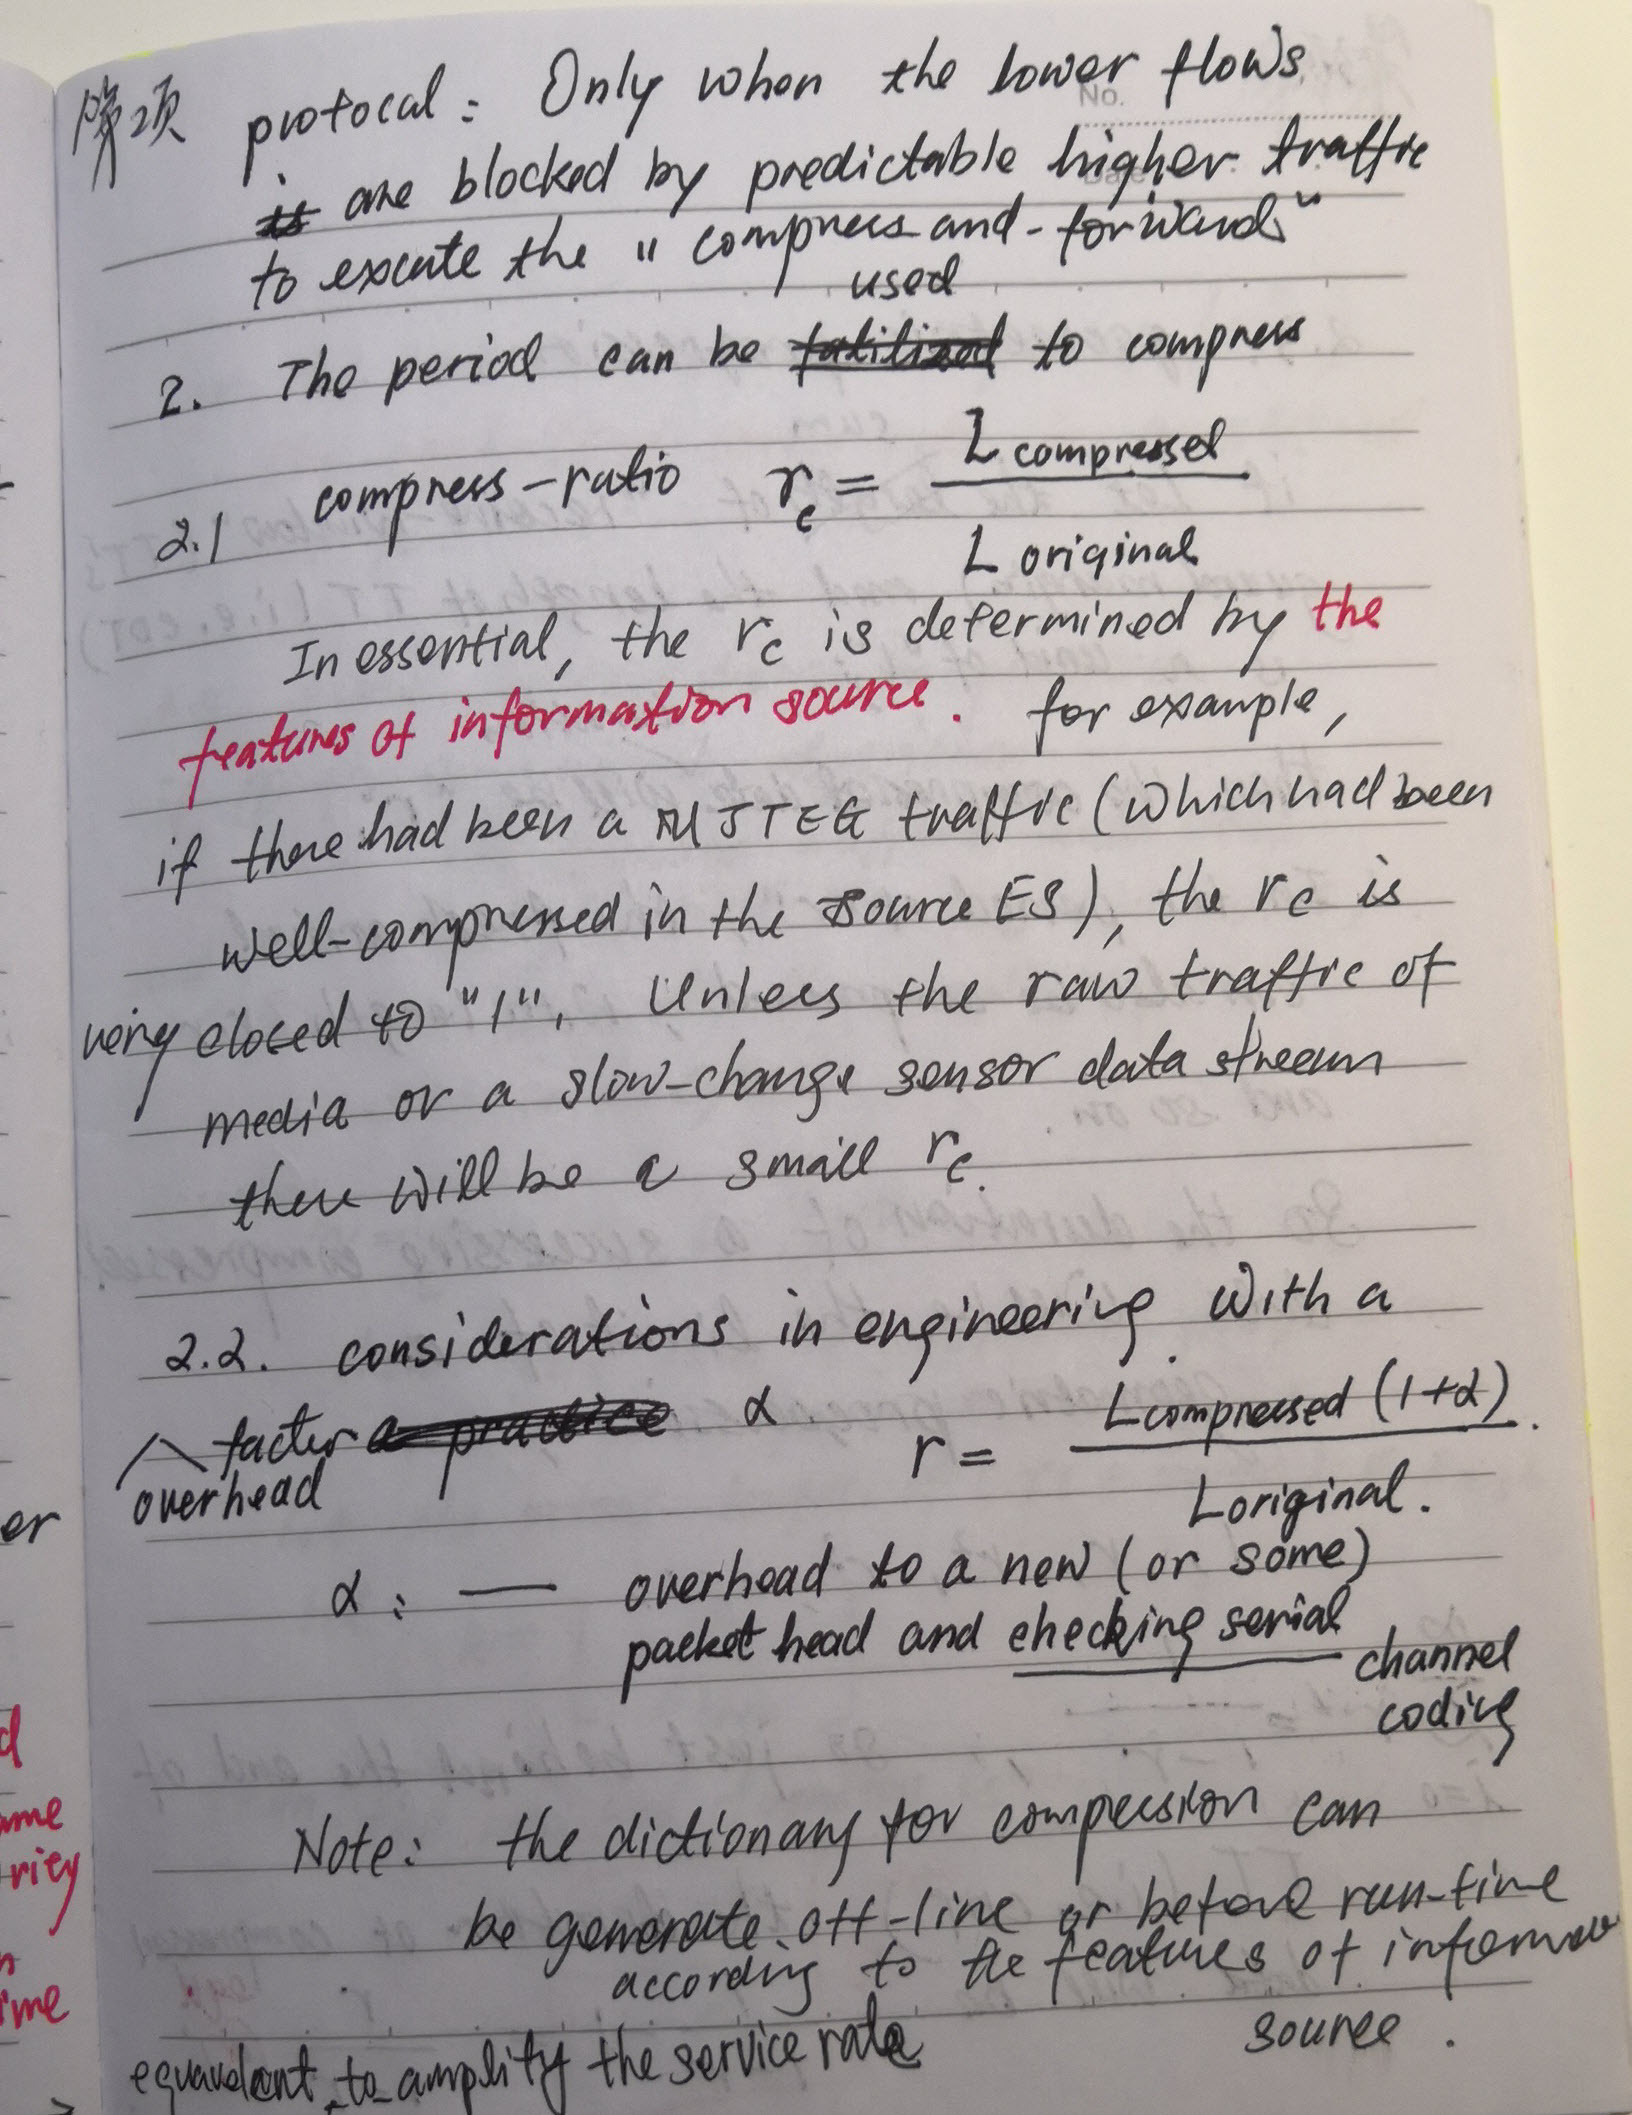 protocal: Only when the lower flows
No.
Date
is are blocked by predictable higher traffic
to excute the "compress and-forward"
used
2. The period can be to compress
2.1 compress-ratio r_c = L compressed / L original
In essential, the r_c is determined by the
features of information source. for example,
if there had been a MJTEG traffic (which had been
well-compressed in the source ES), the r_c is
very closed to "1", Unless the raw traffic of
media or a slow-change sensor data stream
there will be a small r_c.
2.2. considerations in engineering with a
factor a practice α r = Lcompressed (1+α) / Loriginal.
overhead
α: — overhead to a new (or some)
packet head and checking serial
channel
coding
Note: the dictionary for compression can
be generate off-line or before run-time
according to the features of
source.
equavalent to amplify the service rate
er
d
ame
rity
n
ime